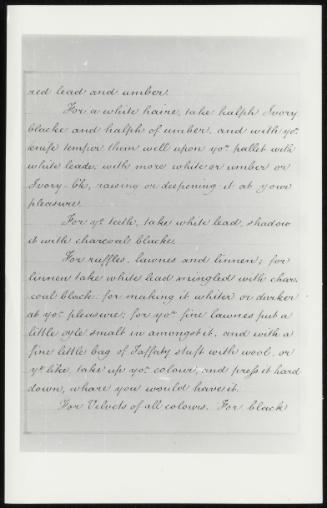 red lead and umber.
For a white haire, take halph Ivory
blacke and halph of umber, and with yor.
knife temper them well upon yor. pallet with
white leade, with more white or umber or
Ivory-blk, raising or deepening it at your
pleasure.
For ye. teeth, take white lead, shadow
it with charcoal blacke.
For ruffles, lawnes and linnen; for
linnen take white lead mingled with char-
coal black: for making it whiter or darker
at yor. pleasure; for yor. fine lawnes put a
little oyle smalt in amongst it, and with a
fine little bag of Taffaty stuft with wool, or
ye. like, take up yor. colour, and press it hard
down, whare you would have it.
For Velvets of all colours. For black